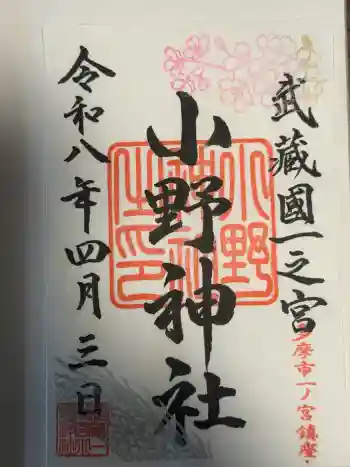 武蔵國一之宮
多摩市一ノ宮鎮座
小野神社
小野神社之印
令和八年四月三日